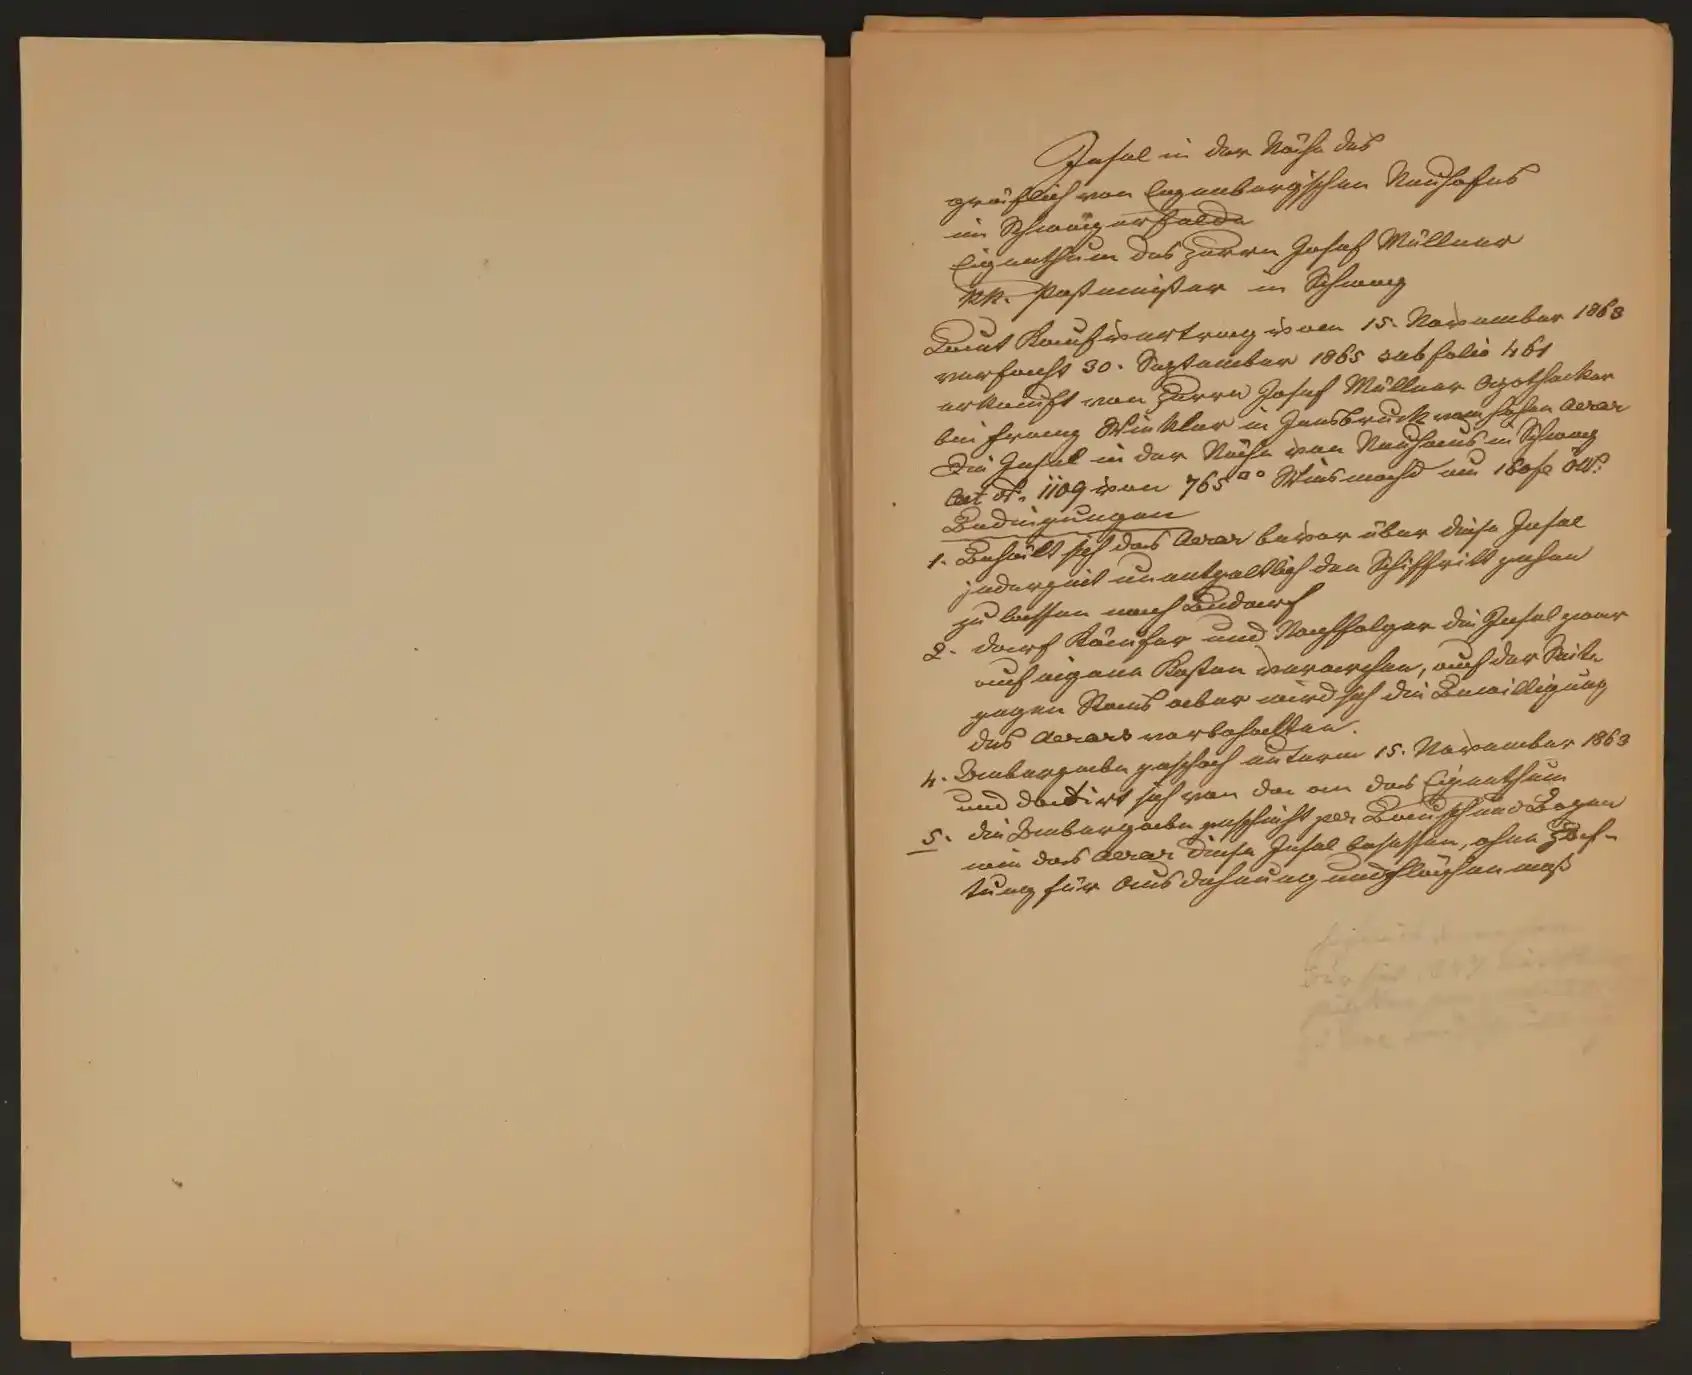 Insel in der Nähe des
gräflich von Enzenbergischen Neuhofes
im Schwazerfelde
Eigenthum des Herrn Josef Müllner
KK. Postmeister in Schwaz
Laut Kaufvertrag vom 15. November 1863
verfacht 30. September 1865 sub folio 461
erkauft von Herrn Josef Müllner Apothecker
bei Franz Winkler in Innsbruck vom hohen Aerar
Die Insel in der Nähe von Neuhaus in Schwaz
Cat. N. 1109 von 765 um
Bedingungen
1. Behält sich das Aerar bevor über diese Insel
jederzeit unentgeltlich den Schiffritt gehen
zu lassen nach Bedarf
2. darf Käufer und Nachfolger die Insel zwar
auf eigene Kosten verarchen, auf der Seite
gegen Stans aber wird sich die Bewilligung
des Aerars vorbehalten.
4. Uebergabe geschah unterm 15. November 1863
und datirt sich von da an das Eigenthum
5. die Uebergabe geschieht per Bausch und Bogen
wie das Aerar diese Insel besessen, ohne Haf-
tung für Ausdehnung und Flächenmaß